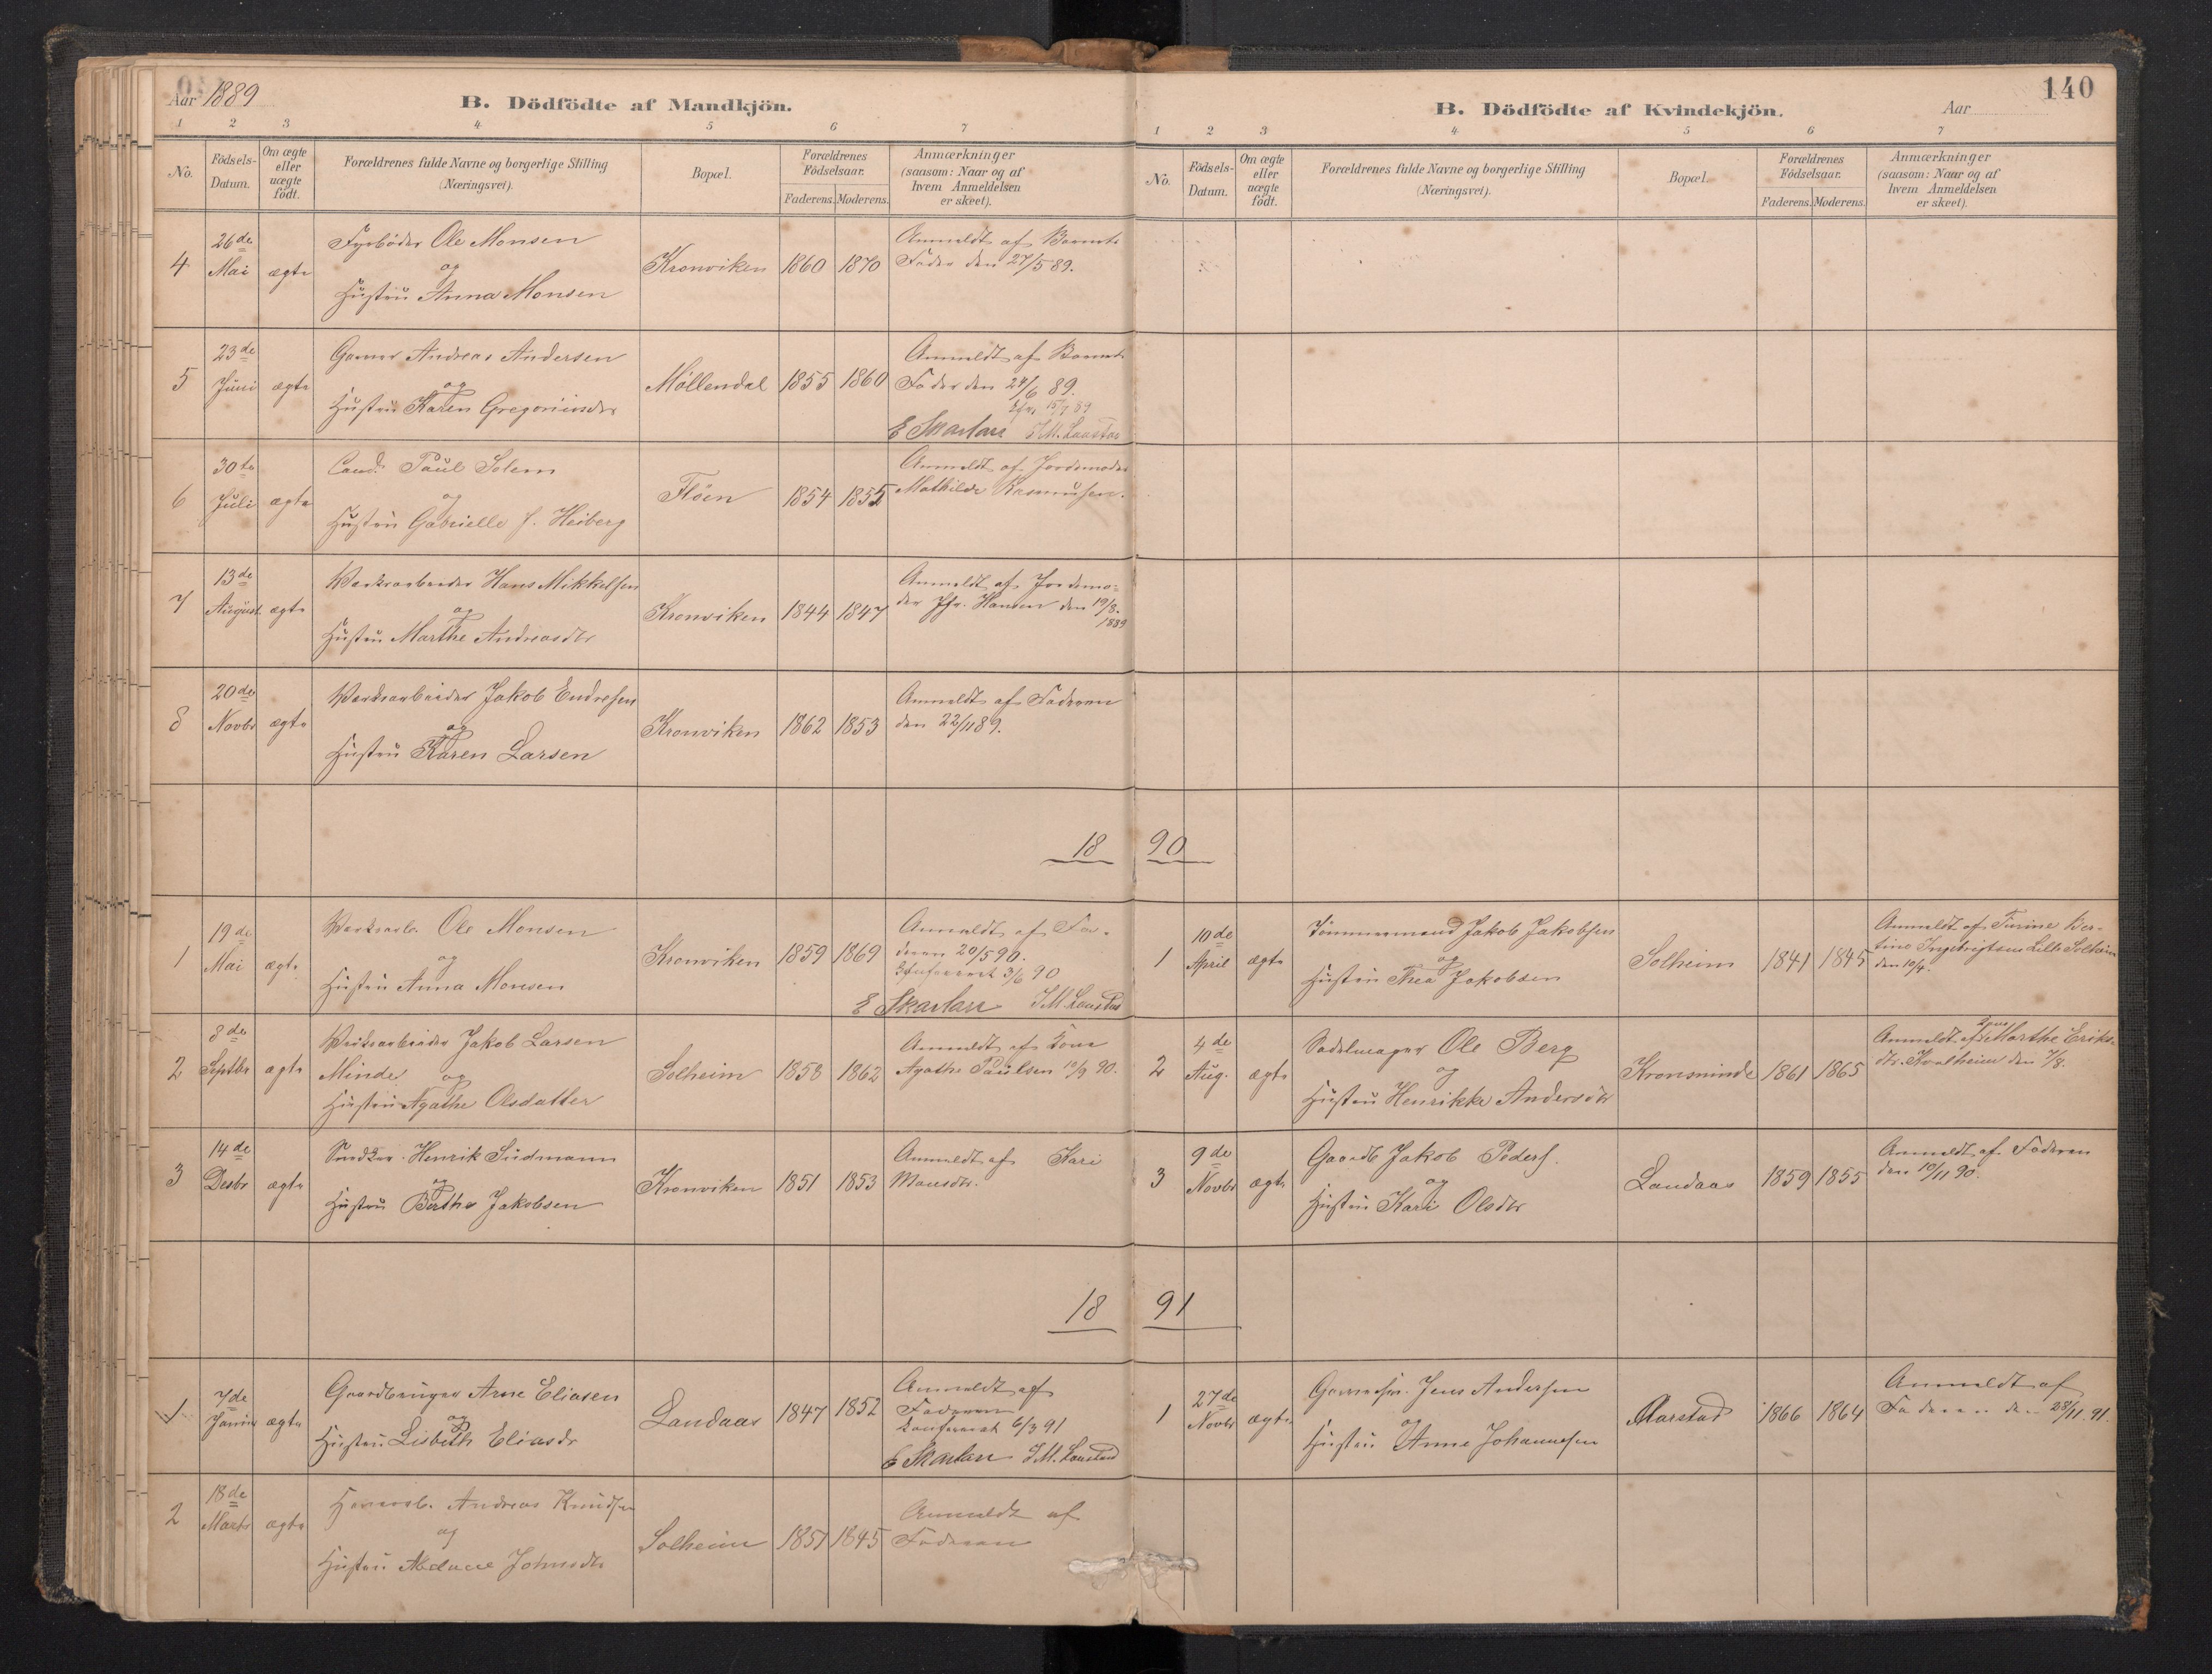 Aar 1889
B. Dödfödte af Mandkjön.
1 2 3 4 5 6 7
No.
Födsels-
Datum.
Om ægte
eller
uægte
födt.
Forældrenes fulde Navne og borgerlige Stilling
(Næringsvei).
Bopæl.
Forældrenes
Födselsaar.
Faderens. Moderens.
Anmærkninger
(saasom: Naar og af
hvem Anmeldelsen
er skeet).
4
26de
Mai
ægte
Fyrbøder Ole Monsen
og
Hustru Anna Monsen
Kronviken
1860
1870
Anmeldt af Barnets
Fader den 27/5 89.
5
23de
Juni
ægte
Garver Andreas Andersen
og
Hustru Karen Gregoriusdr
Møllendal
1855
1860
Anmeldt af Barnets
Fader den 24/6 89.
E Skarlan J M. Laastad
6
30te
Juli
ægte
Cand. Paul Solem
og
Hustru Gabrielle f. Heiberg
Fløen
1854
1855
Anmeldt af Jordemoder
Mathilde Rasmusen.
7
13de
August
ægte
Værksarbeider Hans Mikkelsen
og
Hustru Marthe Andreasdtr
Kronviken
1844
1847
Anmeldt af Jordemo-
der Jfr. Hansen den 19/8.
1889
8
20de
Novbr
ægte
Værksarbeider Jakob Endresen
og
Hustru Karen Larsen
Kronviken
1862
1853
Anmeldt af Faderen
den 22/11 89.
18 90
1
19de
Mai
ægte
Værksarb. Ole Monsen
og
Hustru Anna Monsen
Kronviken
1859
1869
Anmeldt af Fa-
deren 20/5 90.
Konfereret 3/6 90
E Skarlan J M Laastad
2
8de
Septbr
ægte
Værksarbeider Jakob Larsen
Minde og
Hustru Agathe Olsdatter
Solheim
1858
1862
Anmeldt af Kone
Agathe Paulsen 10/9 90.
3
14de
Desbr
ægte
Henrik Südmann
og
Hustru Berthe Jakobsen
Kronviken
1851
1853
Anmeldt af Kari
Monsdtr.
18 91
1
7de
Januar
ægte
Gaardbruger Arne Eliasen
og
Hustru Lisbeth Eliasdr
Landaas
1847
1852
Anmeldt af
Faderen
Konfereret 6/3 91
E Skarlan J M. Laastad
2
18de
Marts
ægte
Andreas Knudsen
og
Hustru Johnsdtr
Solheim
1851
1845
Anmeldt af
Faderen
140
B. Dödfödte af Kvindekjön.
Aar
1 2 3 4 5 6 7
No.
Födsels-
Datum.
Om ægte
eller
uægte
födt.
Forældrenes fulde Navne og borgerlige Stilling
(Næringsvei).
Bopæl.
Forældrenes
Födselsaar.
Faderens. Moderens.
Anmærkninger
(saasom: Naar og af
hvem Anmeldelsen
er skeet).
1
10de
April
ægte
Tømmermand Jakob Jakobsen
og
Hustru Thea Jakobsen
Solheim
1841
1845
Anmeldt af Turine Ber-
tine Ingebrigtsen Lille Solheim
den 10/4.
2
4de
Aug.
ægte
Sadelmager Ole Berg
og
Hustru Henrikke Andersdr
Kronsminde
1861
1865
Anmeldt af Marthe Eriks-
dtr. Kvalheim den 7/8.
3
9de
Novbr
ægte
Gaardb Jakob Peders.
og
Hustru Kari Olsdtr
Landaas
1859
1855
Anmeldt af Faderen
den 10/11 90.
1
27de
Novbr
ægte
Jens Andersen
og
Hustru Anne Johannesen
Aarstad
1866
1864
Anmeldt af
Faderen den 28/11 91.